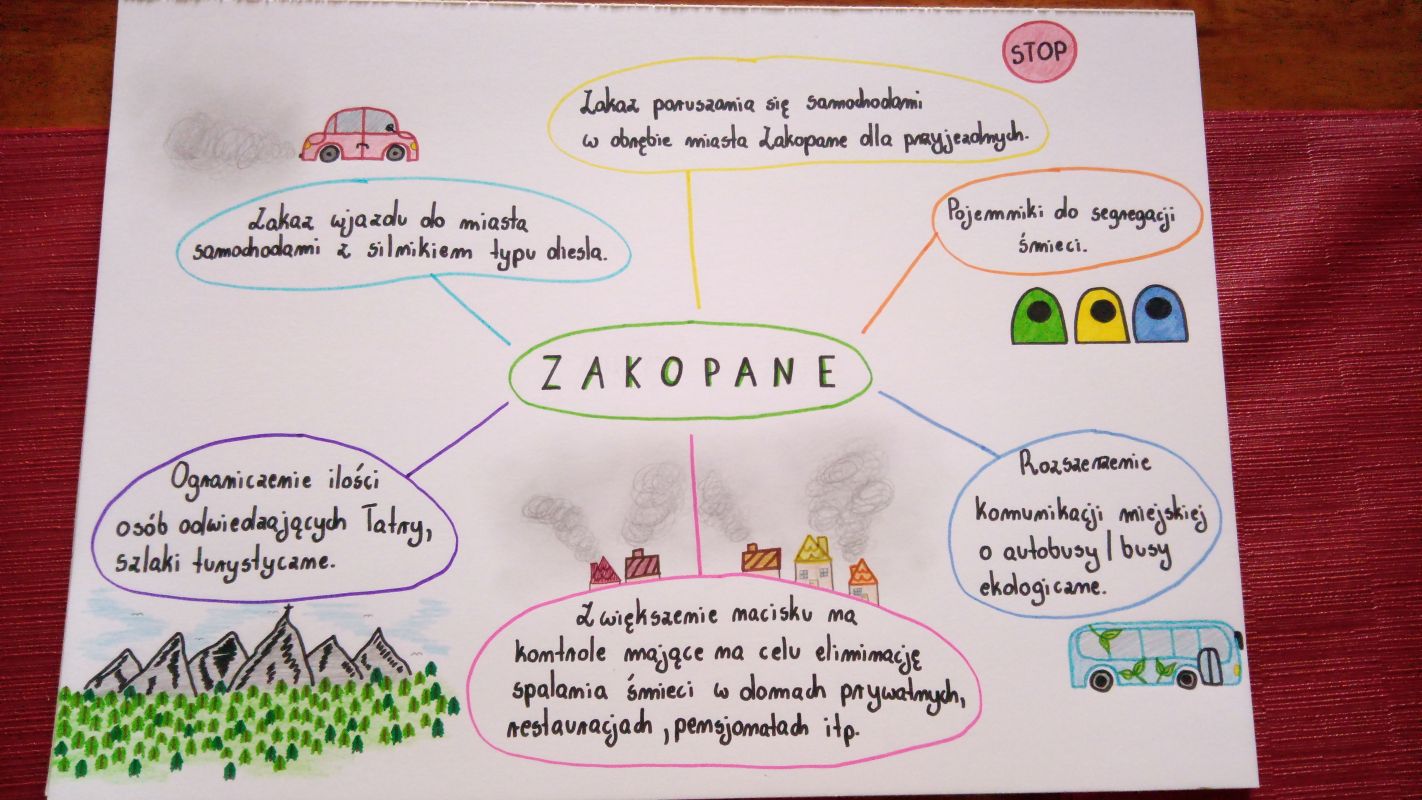 STOP
Zakaz poruszania się samochodami
w obrębie miasta Zakopane dla przyjezdnych.
Zakaz wjazdu do miasta
samochodami z silnikiem typu diesla.
Pojemniki do segregacji
śmieci.
ZAKOPANE
Ograniczenie ilości
osób odwiedzających Tatry,
szlaki turystyczne.
Rozszerzenie
komunikacji miejskiej
o autobusy/busy
ekologiczne.
Zwiększenie nacisku na
kontrole mające na celu eliminację
spalania śmieci w domach prywatnych,
restauracjach, pensjonatach itp.